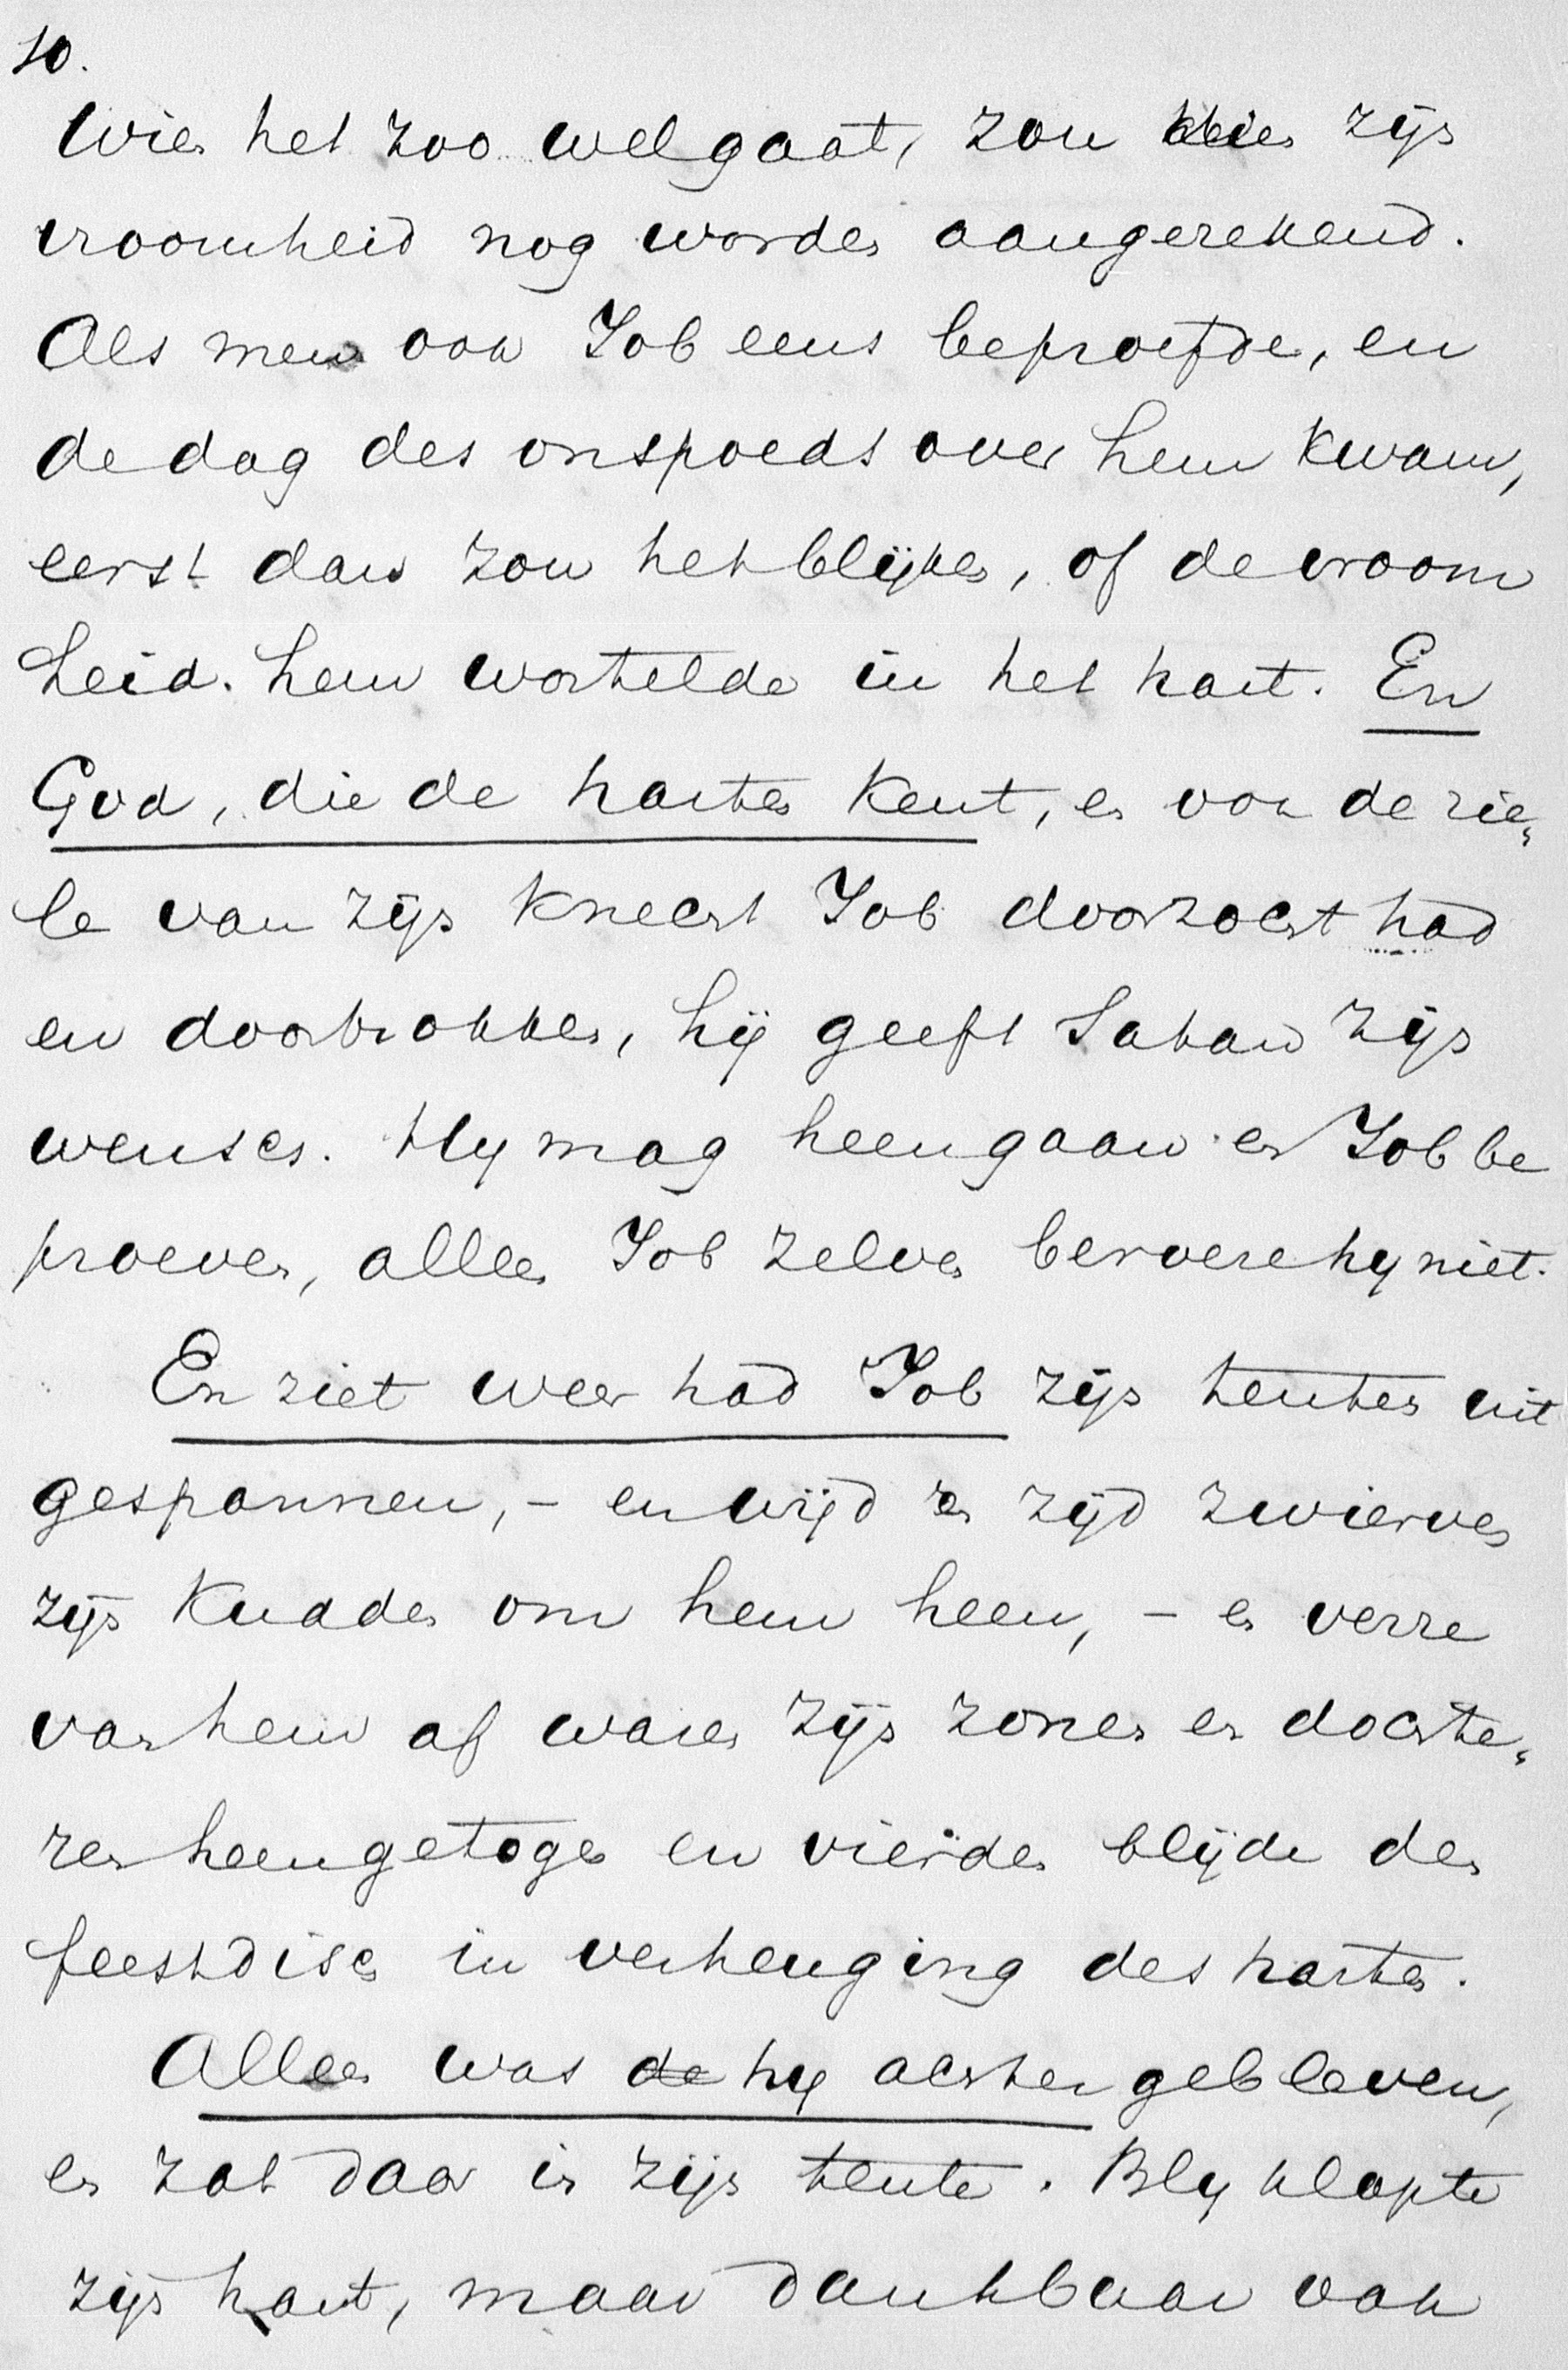 10.
Wien het zoo wel gaat, zou dien zijn
vroomheid nog worden aangerekend.
Als men ook Job eens beproefde, en
de dag des onspoeds over hem kwam,
eerst dan zou het blijken, of de vroom
heid hem wortelde in het hart. En
God, die de harten kent, en ook de zie„
le van zijn knecht Job doorzocht had
en doortrokken, hij geeft Satan zijn
wensch. Hy mag heengaan en Job be
proeven, alleen Job zelven beroere hy niet.
En ziet weer had Job zijn tenten uit
gespannen, – en wijd en zijd zwierven
zijn Kudden om hem heen, – en verre
van hem af waren zijn zonen en dochte„
ren heengetogen en vierden blijde den
feestdisch in verheuging des harten.
Alleen was de hy achter gebleven,
en zat daar in zijn tente. Bly klopte
zijn hart, maar dankbaar ook